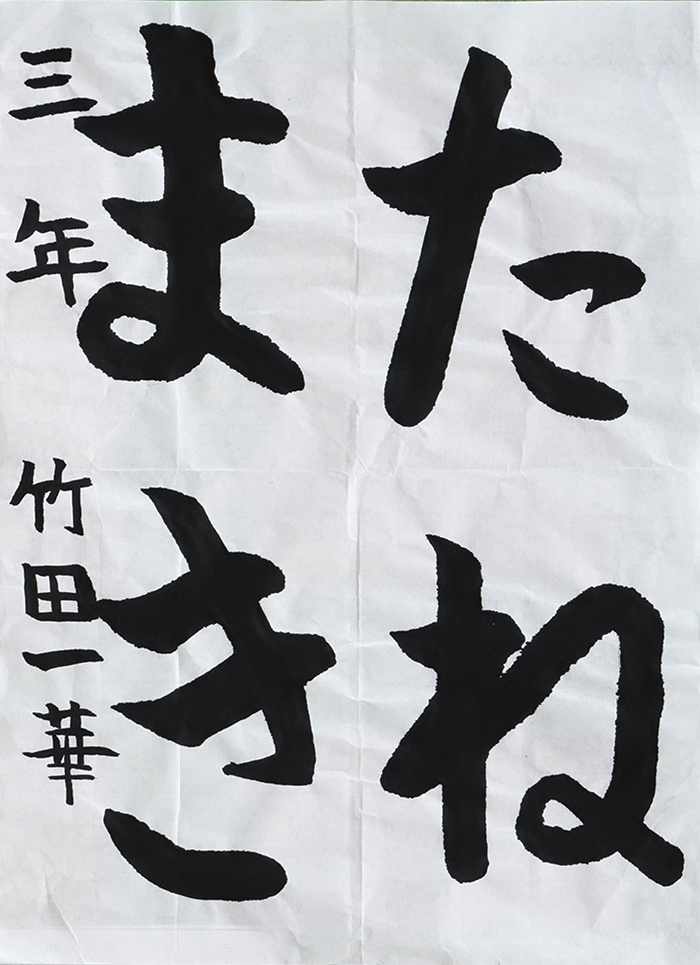 たね
まき
三年 竹田一華